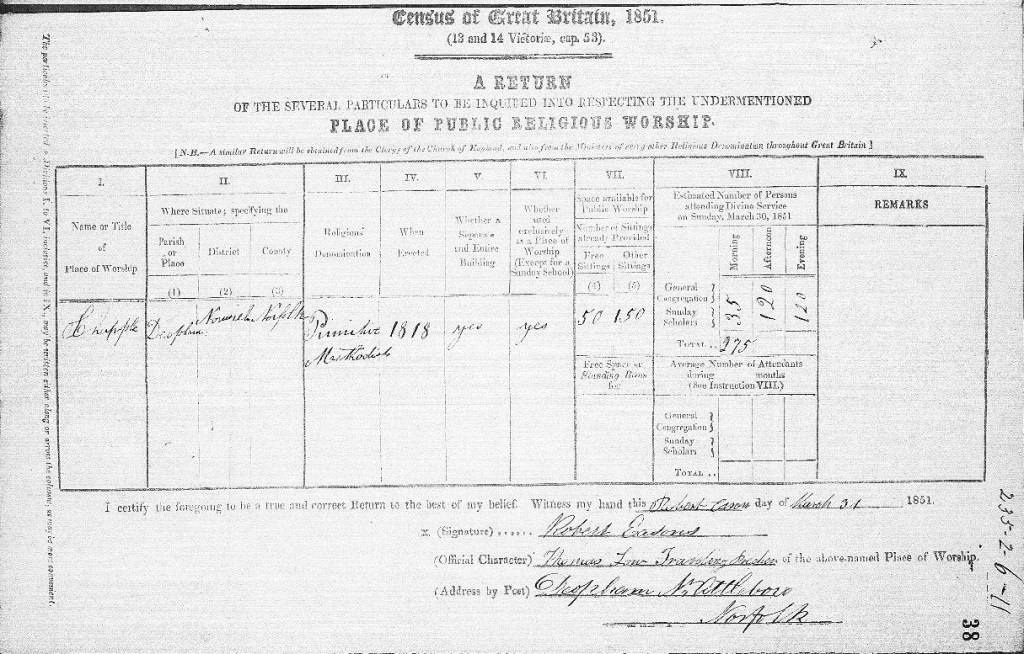 Census of Great Britain, 1851.
(13 and 14 Victoriæ, cap. 53).
A RETURN
OF THE SEVERAL PARTICULARS TO BE INQUIRED INTO RESPECTING THE UNDERMENTIONED
PLACE OF PUBLIC RELIGIOUS WORSHIP.
[N.B.—A similar Return will be obtained from the Clergy of the Church of England, and also from the Ministers of every other Religious Denomination throughout Great Britain]
I.
Name or Title
of
Place of Worship
II.
Where Situate; specifying the
Parish
or
Place
(1)
District
(2)
County
(3)
III.
Religious
Denomination
IV.
When
Erected
V.
Whether a
Separate
and Entire
Building
VI.
Whether
used
exclusively
as a Place of
Worship
(Except for a
Sunday School)
VII.
Space available for
Public Worship
Number of Sittings
already Provided
Free
Sittings
(4)
Other
Sittings
(5)
VIII.
Estimated Number of Persons
attending Divine Service
on Sunday, March 30, 1851
Morning
Afternoon
Evening
General
Congregation
Sunday
Scholars
35
120
120
TOTAL .. 275
IX.
REMARKS
Chapple
Norfolk
Primitive
Methodist
1818
yes
yes
50
150
Free Space or
Standing Room
for
Average Number of Attendants
during months
(See Instruction VIII.)
General
Congregation
Sunday
Scholars
TOTAL ..
I certify the foregoing to be a true and correct Return to the best of my belief. Witness my hand this Robert day of March 31 1851.
x. (Signature) ...... Robert
(Official Character) Thomas Low of the above-named Place of Worship.
(Address by Post) Attleboro
Norfolk
The particulars to be inserted in Divisions I. to VI. inclusive, and in IX., may be written either along or across the columns, as may be more convenient.
235-2-6-11
38